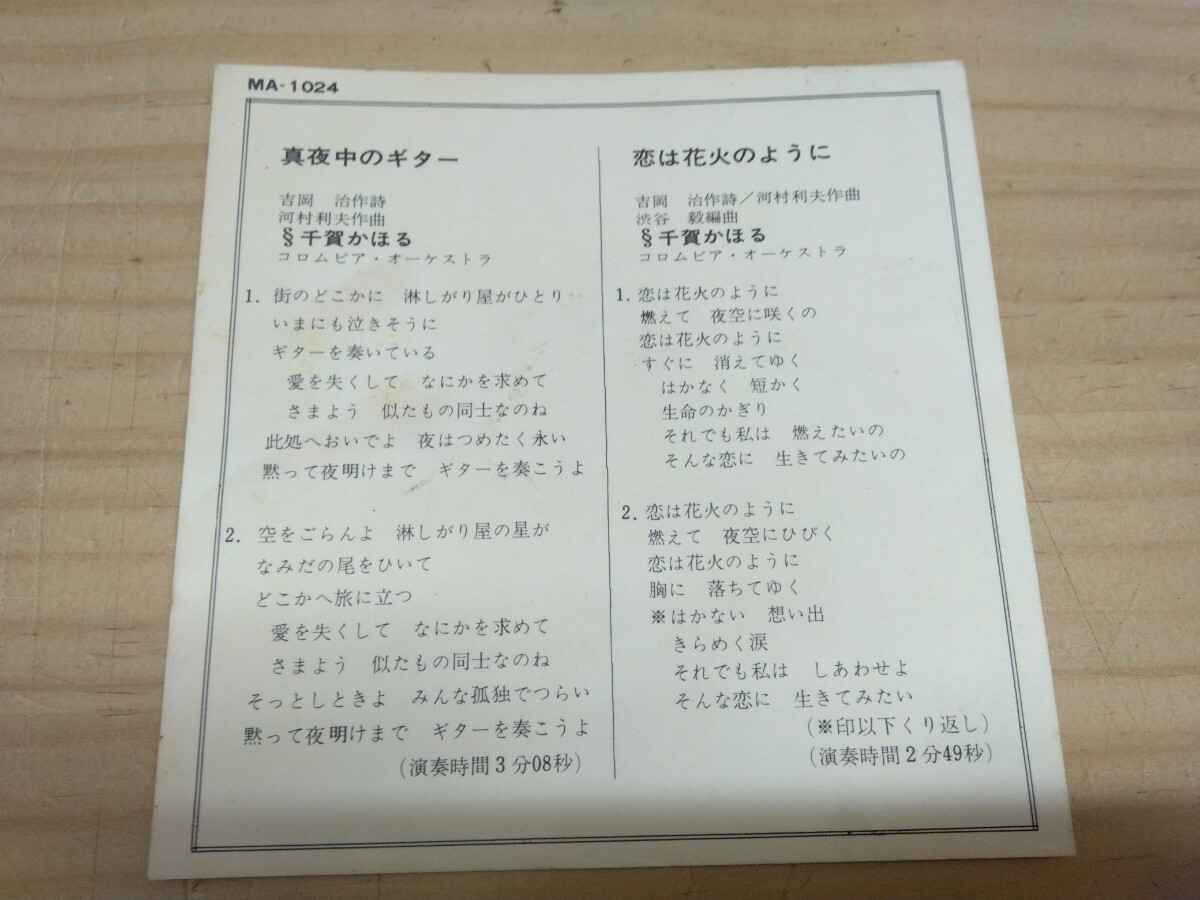 MA-1024
真夜中のギター
吉岡　治作詩
河村利夫作曲
§千賀かほる
コロムビア・オーケストラ
1. 街のどこかに　淋しがり屋がひとり
いまにも泣きそうに
ギターを奏いている
愛を失くして　なにかを求めて
さまよう　似たもの同士なのね
此処へおいでよ　夜はつめたく永い
黙って夜明けまで　ギターを奏こうよ
2. 空をごらんよ　淋しがり屋の星が
なみだの尾をひいて
どこかへ旅に立つ
愛を失くして　なにかを求めて
さまよう　似たもの同士なのね
そっとしときよ　みんな孤独でつらい
黙って夜明けまで　ギターを奏こうよ
(演奏時間3分08秒)
恋は花火のように
吉岡　治作詩／河村利夫作曲
渋谷　毅編曲
§千賀かほる
コロムビア・オーケストラ
1. 恋は花火のように
燃えて　夜空に咲くの
恋は花火のように
すぐに　消えてゆく
はかなく　短かく
生命のかぎり
それでも私は　燃えたいの
そんな恋に　生きてみたいの
2. 恋は花火のように
燃えて　夜空にひびく
恋は花火のように
胸に　落ちてゆく
※はかない　想い出
きらめく涙
それでも私は　しあわせよ
そんな恋に　生きてみたい
(※印以下くり返し)
(演奏時間2分49秒)